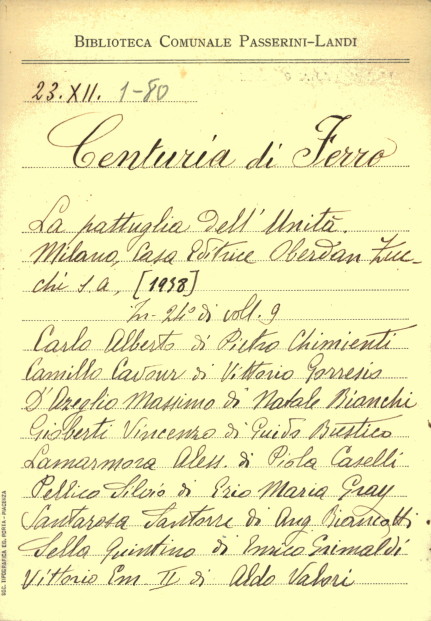 BIBLIOTECA COMUNALE PASSERINI-LANDI
23.XII. 1-80
Centuria di Ferro
La pattuglia dell'Unità.
Milano, Casa Editrice Oberdan Zuc-
chi s.a, [1938]
In-24° di voll. 9
Carlo Alberto di Pietro Chimienti
Camillo Cavour di Vittorio Gorresio
D'Azeglio Massimo di Natale Bianchi
Gioberti Vincenzo di Guido Bustico
Lamarmora Aless. di Piola Caselli
Pellico Silvio di Ezio Maria Gray
Santarosa Santorre di Ang Biancotti
Sella Quintino di Enrico Grimaldi
Vittorio Em II di Aldo Valori
SOC. TIPOGRAFICA ED. PORTA - PIACENZA